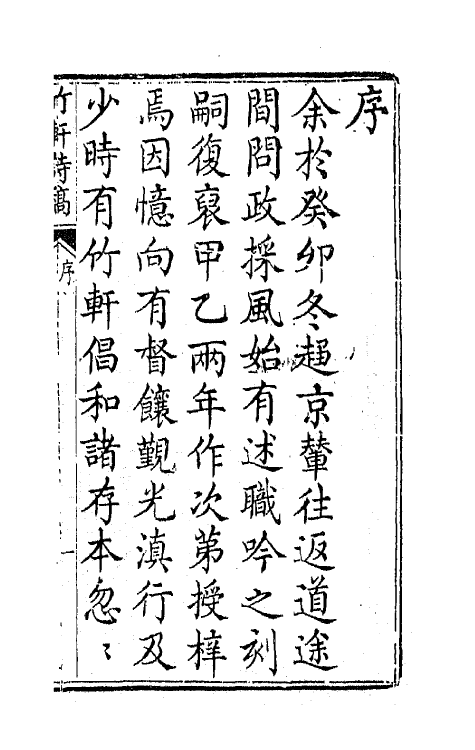 序
余於癸卯冬趨京輦往返道途
間問政採風始有述職吟之刻
嗣復裒甲乙兩年作次第授梓
焉因憶向有督饟覲光滇行及
少時有竹軒倡和諸存本忽〻
竹軒詩稿
序
一